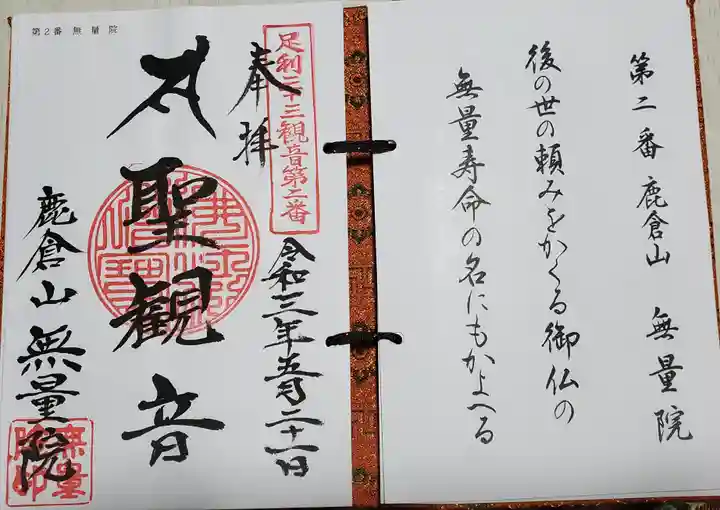 第二番 鹿倉山 無量院
後の世の頼みをかくる御仏の
無量寿命の名にもかよへる
足利三十三観音第二番
奉拝
令和三年五月二十一日
聖観音
鹿倉山無量院
第2番 無量院
無量
院印